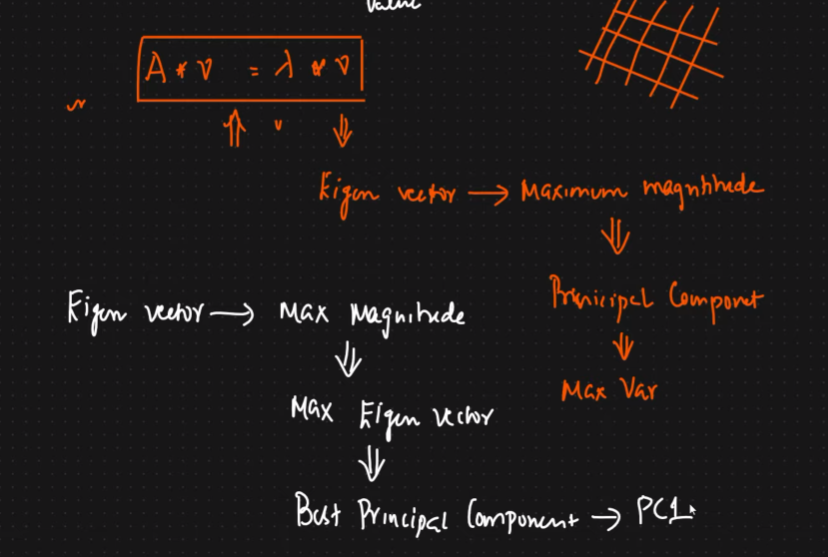 Value
A * v = λ * v
Eigen vector → Maximum magnitude
⇓
Prinicipal Componet
⇓
Max Var
Eigen vector → Max Magnitude
⇓
Max Eigen vector
⇓
Best Principal Component → PC1